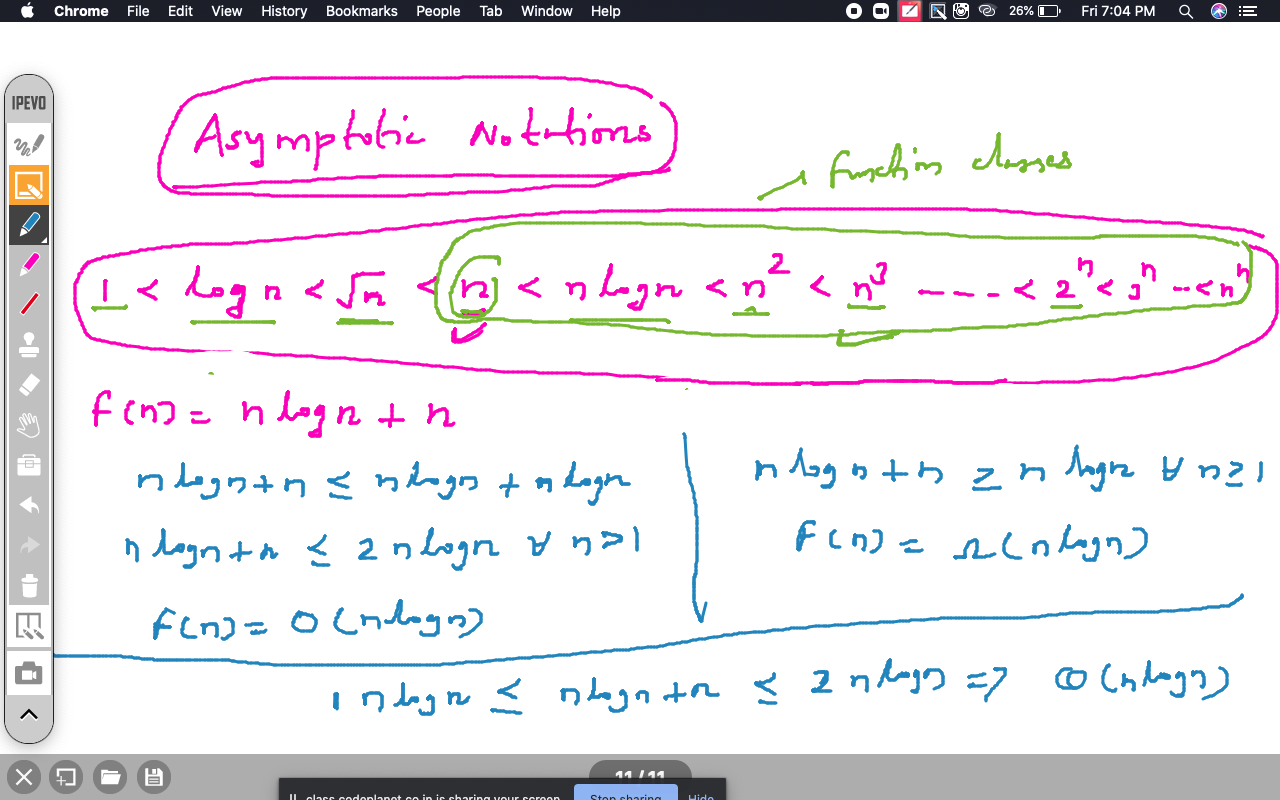 Chrome File Edit View History Bookmarks People Tab Window Help 26% Fri 7:04 PM
IPEVO
Asymptotic Notations
function classes
1 < log n < √n < n < n log n < n² < n³ ---- < 2ⁿ < 3ⁿ --< nⁿ
F(n) = n log n + n
n log n + n ≤ n log n + n log n
n log n + n ≤ 2 n log n ∀ n > 1
F(n) = O(n log n)
n log n + n ≥ n log n ∀ n ≥ 1
F(n) = Ω(n log n)
1 n log n ≤ n log n + n ≤ 2 n log n => Θ(n log n)
11 / 11
class.codeplanet.co.in is sharing your screen. Stop sharing Hide